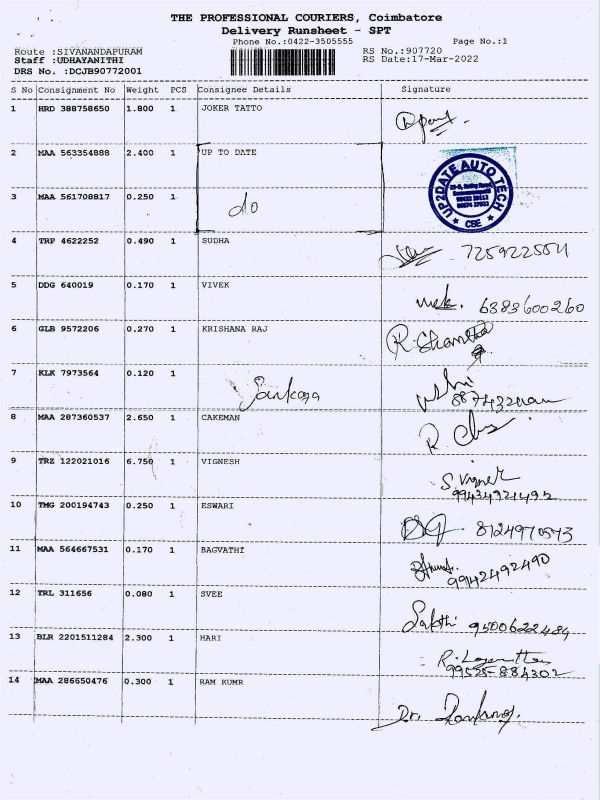 THE PROFESSIONAL COURIERS, Coimbatore
Delivery Runsheet - SPT
Phone No.:0422-3505555 Page No.:1
Route :SIVANANDAPURAM RS No.:907720
Staff :UDHAYANITHI RS Date:17-Mar-2022
DRS No. :DCJB90772001
S No Consignment No Weight PCS Consignee Details Signature
1 HRD 388758650 1.800 1 JOKER TATTO
2 MAA 563354888 2.400 1 UP TO DATE
UP2DATE AUTO TECH
CBE
3 MAA 561708817 0.250 1 do
4 TRP 4622252 0.490 1 SUDHA
5 DDG 640019 0.170 1 VIVEK 6383600260
6 GLB 9572206 0.270 1 KRISHANA RAJ
7 KLK 7973564 0.120 1
8 MAA 287360537 2.650 1 CAKEMAN
9 TRZ 122021016 6.750 1 VIGNESH
10 TMG 200194743 0.250 1 ESWARI 8124970573
11 MAA 564667531 0.170 1 BAGVATHI 99142492490
12 TRL 311656 0.080 1 SVEE Sakthi 9500622484
13 BLR 2201511284 2.300 1 HARI 99525-884302
14 MAA 286650476 0.300 1 RAM KUMR